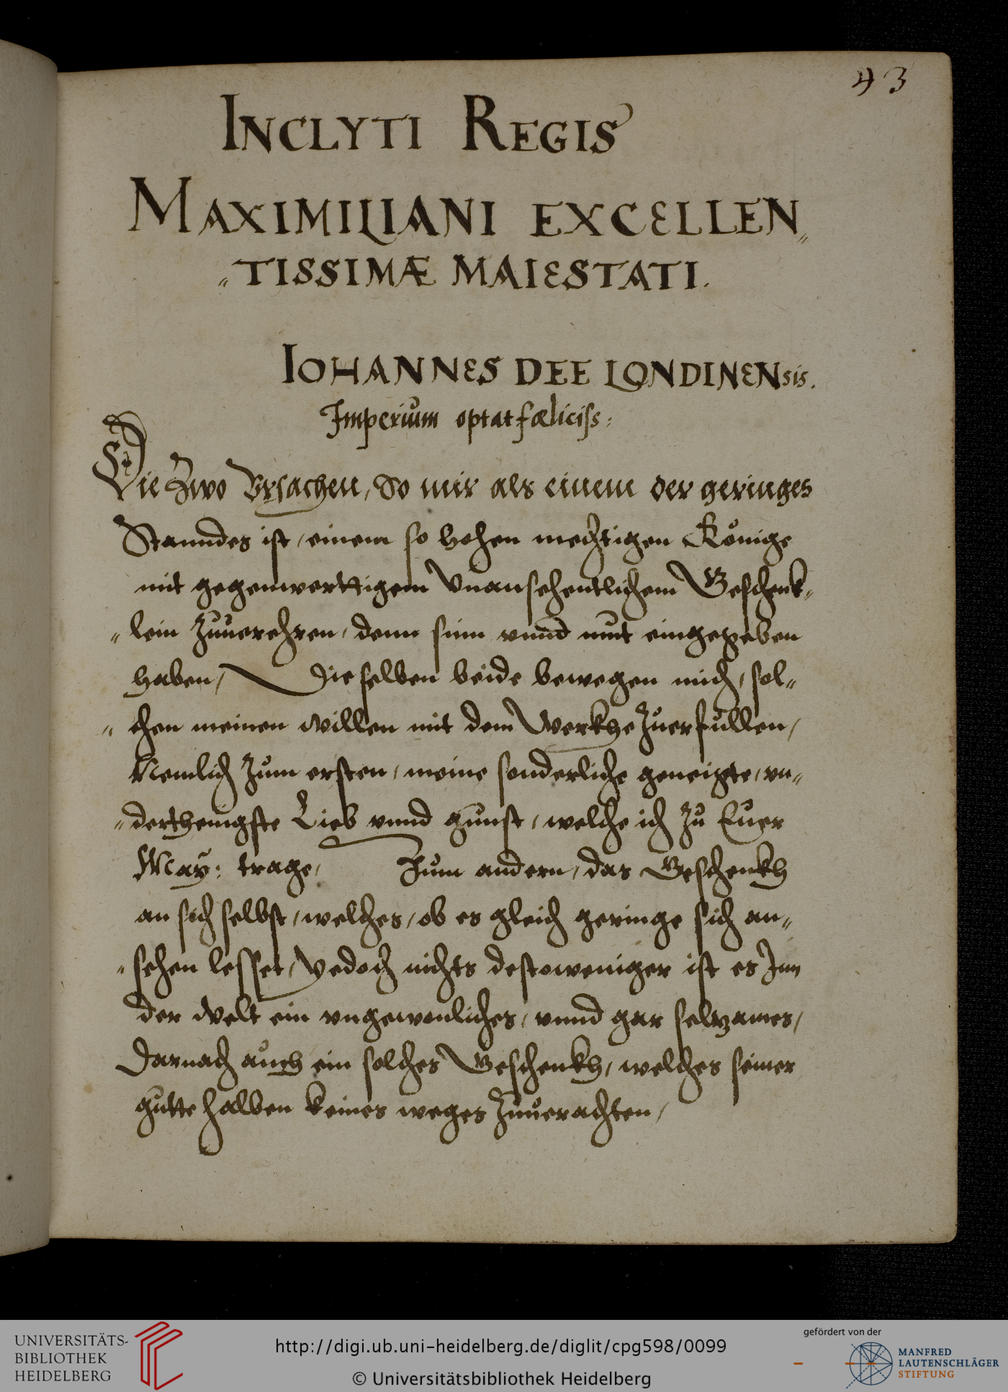 43
INCLYTI REGIS
MAXIMILIANI EXCELLEN„
„TISSIMÆ MAIESTATI.
IOHANNES DEE LONDINENsis.
Imperium optat fœliciss:
Die Zwo Vrsachen, So mir als einem der geringes
Stanndes ist, einem so hohen mechtigen Könige
mit gegenwerttigem Vnansehentlichem Geschenk„
„lein Zuuerehren, denn sinn vnnd mut eingegeben
haben, Dieselben beide bewegen mich, sol„
„chen meinen Willen mit dem Werkhe Zuerfüllen,
Nemlich Zum ersten, meine sonderliche geneigte, vn„
„derthenigste Lieb vnnd gunst, welche ich zu Euer
May: trage, Zum andern, das Geschenkh
an sich selbst, welches, ob es gleich geringe sich an„
„sehen lesset, Yedoch nichts destoweniger ist es Inn
der Welt ein vngewonliches, vnnd gar seltzames,
Darnach auch ein solches Geschenkh, welches seiner
gutte halben keines weges Zuuerachten,
UNIVERSITÄTS-
BIBLIOTHEK
HEIDELBERG
http://digi.ub.uni-heidelberg.de/diglit/cpg598/0099
© Universitätsbibliothek Heidelberg
gefördert von der
MANFRED
LAUTENSCHLÄGER
STIFTUNG